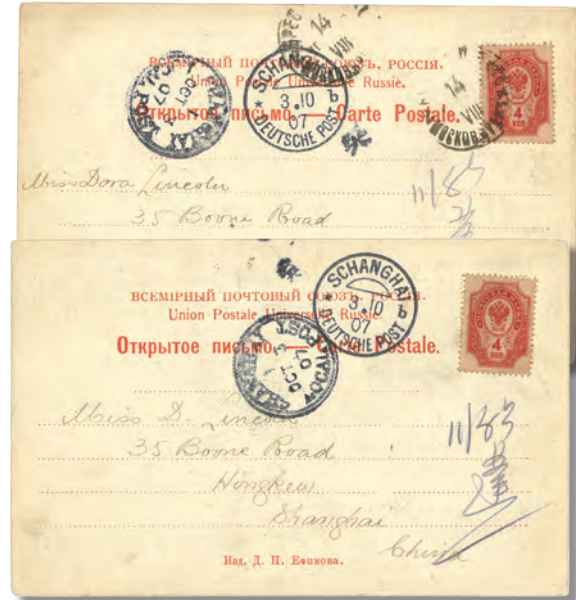 14
VIII
ВСЕМІРНЫЙ ПОЧТОВЫЙ СОЮЗЪ. РОССІЯ.
Union Postale Universelle Russie.
Открытое письмо. — Carte Postale.
SCHANGHAI
* 3.10 b
07
DEUTSCHE POST
SHANGHAI LOCAL POST
OCT
07
14
VIII
4
КОП
Miss Dora Lincoln
35 Boone Road
11/83
ВСЕМІРНЫЙ ПОЧТОВЫЙ СОЮЗЪ. РОССІЯ.
Union Postale Universelle Russie.
Открытое письмо. — Carte Postale.
SCHANGHAI
* 3.10 b
07
DEUTSCHE POST
SHANGHAI LOCAL POST
OCT
07
4
КОП
Miss D. Lincoln
35 Boone Road
Hongkew
Shanghai
China
11/83
達
Изд. Д. П. Ефимова.